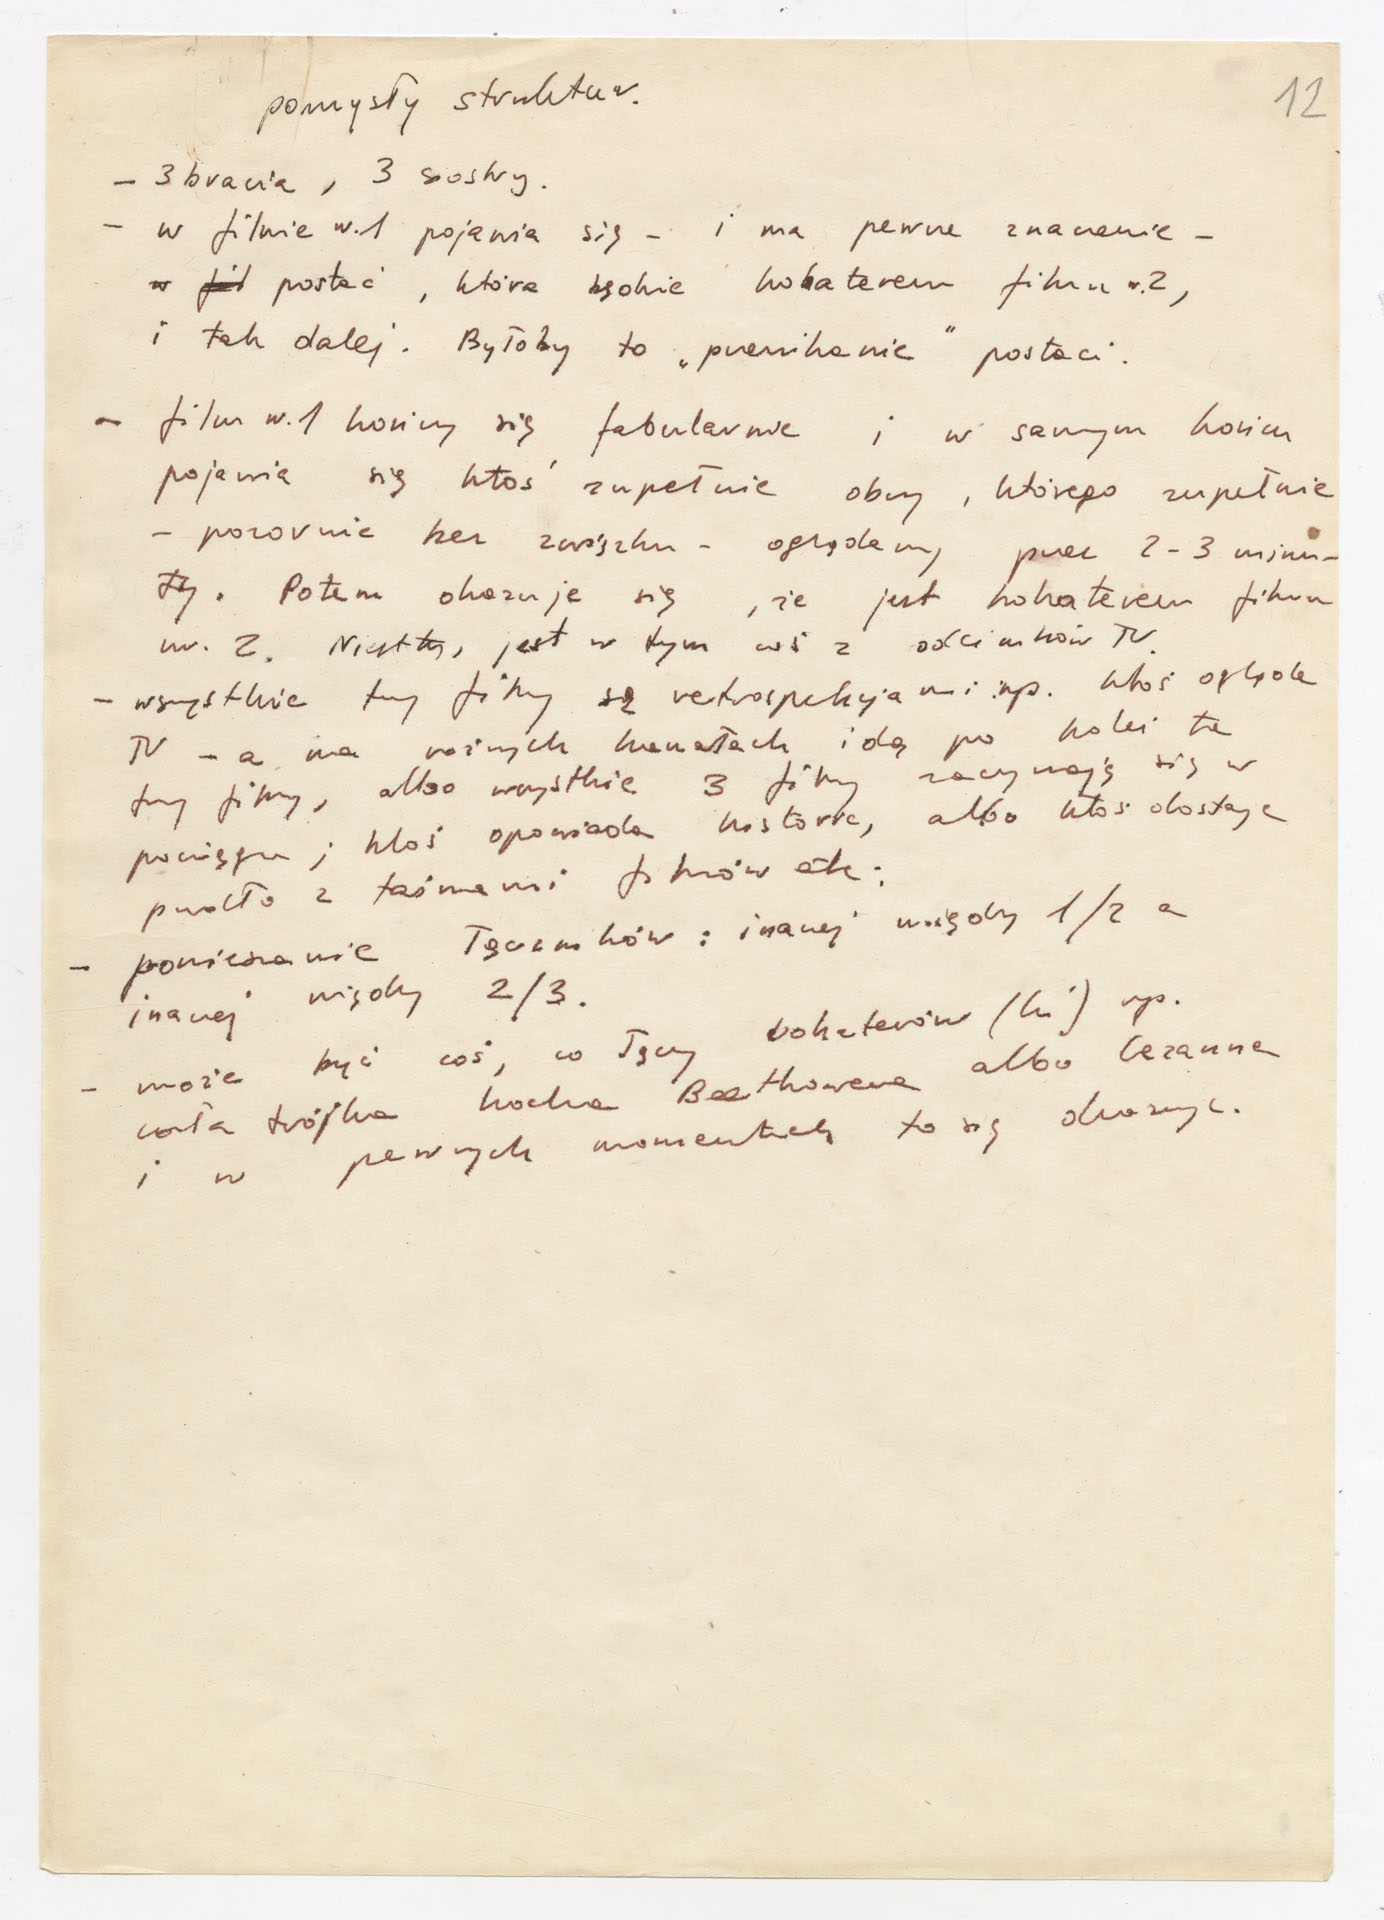 12
pomysły struktur.
– 3 bracia, 3 siostry.
– w filmie nr. 1 pojawia się – i ma pewne znaczenie –
w fil postać, która będzie bohaterem filmu nr. 2,
i tak dalej. Byłoby to „przenikanie" postaci.
– film nr. 1 kończy się fabularnie i w samym końcu
pojawia się ktoś zupełnie obcy, którego zupełnie
– pozornie bez związku – oglądamy przez 2–3 minu–
ty. Potem okazuje się, że jest bohaterem filmu
nr. 2. Niestety, jest w tym coś z odcinków TV.
– wszystkie trzy filmy są retrospekcjami np. ktoś ogląda
TV – a na różnych kanałach idą po kolei te
trzy filmy, albo wszystkie 3 filmy zaczynają się w
pociągu; ktoś opowiada historie, albo ktoś dostaje
pudło z taśmami filmów etc.
– pomieszanie łączników: inaczej między 1/2 a
inaczej między 2/3.
– może być coś, co łączy bohaterów (ki) np.
cała trójka kocha Beethovena albo Cezanna
i w pewnych momentach to się okazuje.